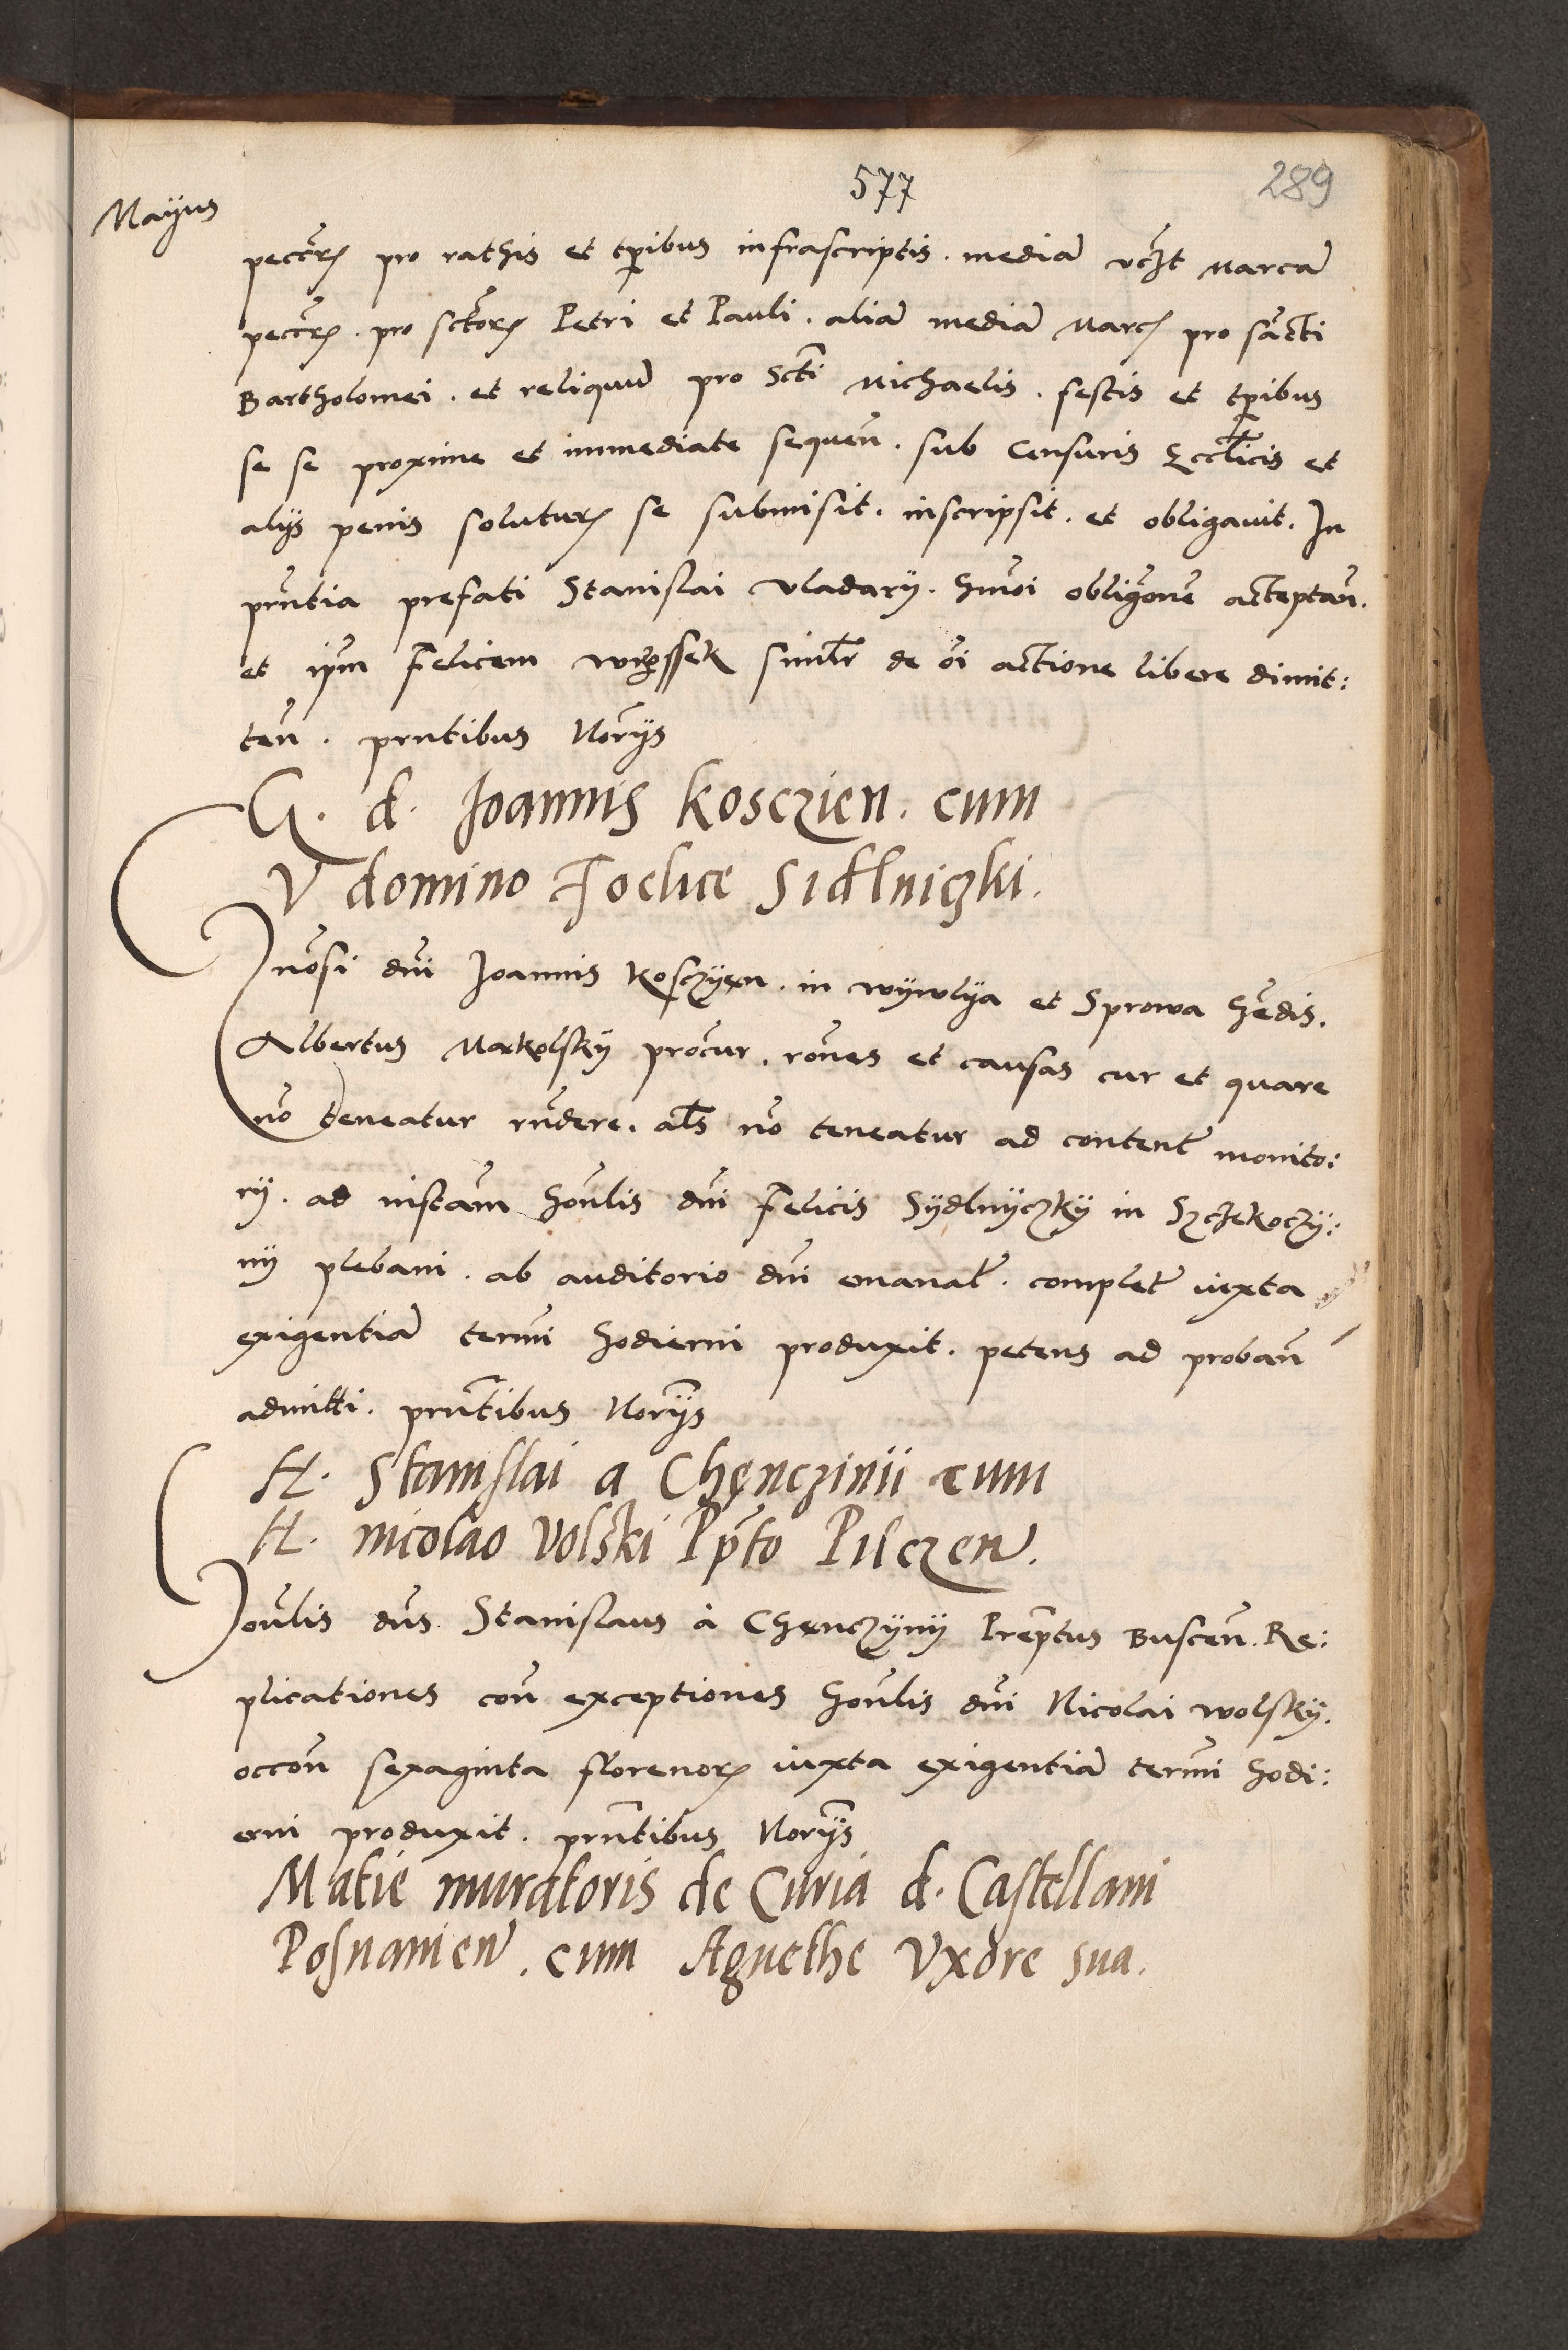 577
289
Mayus
peccⁿrꝝ pro rathis et tꝑibus infrascriptis . mediā vꝫt Marcā
peccⁿrꝝ . pro sctorꝝ Petri et Pauli . aliā mediā Marcꝭ pro sācti
Bartholomei . et reliquū pro Scti Michaelis . festis et tꝑibus
se se proxime et immediate sequeñ . sub Censuris Eccl̄icis et
alijs penis soluturꝝ se submisit . inscripsit . et obligauit . In
prn̄tia prefati Stanislai vladarij . hmōi obligōne acceptañ .
et ip̄m Felicem similr̄ de oī actione libere dimit:
teñ . prn̄tibus Nōrijs
G. d. Joannis Kosczien . cum
V domino Foelice Sidlniczki .
nōsi dn̄i Joannis Kosczyen . in wijwlija et Sprowa hēdis .
Albertus Mokolskij procur . rōnes et causas cur et quare
nō teneatur rn̄dere . al̄s nō teneatur ad content̄ monito:
rij . ad instañ honlis dn̄i Felicis Sijdlnijczkij in Szczekoczij:
nij plebani . ab auditorio dn̄i emanat̄ . complet̄ iuxta
exigentiā termi hodierni produxit . petens ad probañ
admitti . prn̄tibus Nōrijs
H. Stanislai a Chęnczinii cum
H. nicolao Volski Pp̄to Pilczen .
Honlis dn̄s Stanislaus à Chęnczijnij Prep̄tus Busceñ . Re:
plicationes con̄ exceptiones honlis dn̄i Nicolai wolskij .
occōn sexaginta florenorꝝ iuxta exigentiā termi hodi:
erni produxit . prn̄tibus Nōrijs
Matie muratoris de Curia d. Castellani
Posnanien . cum Agnethe Vxore sua .